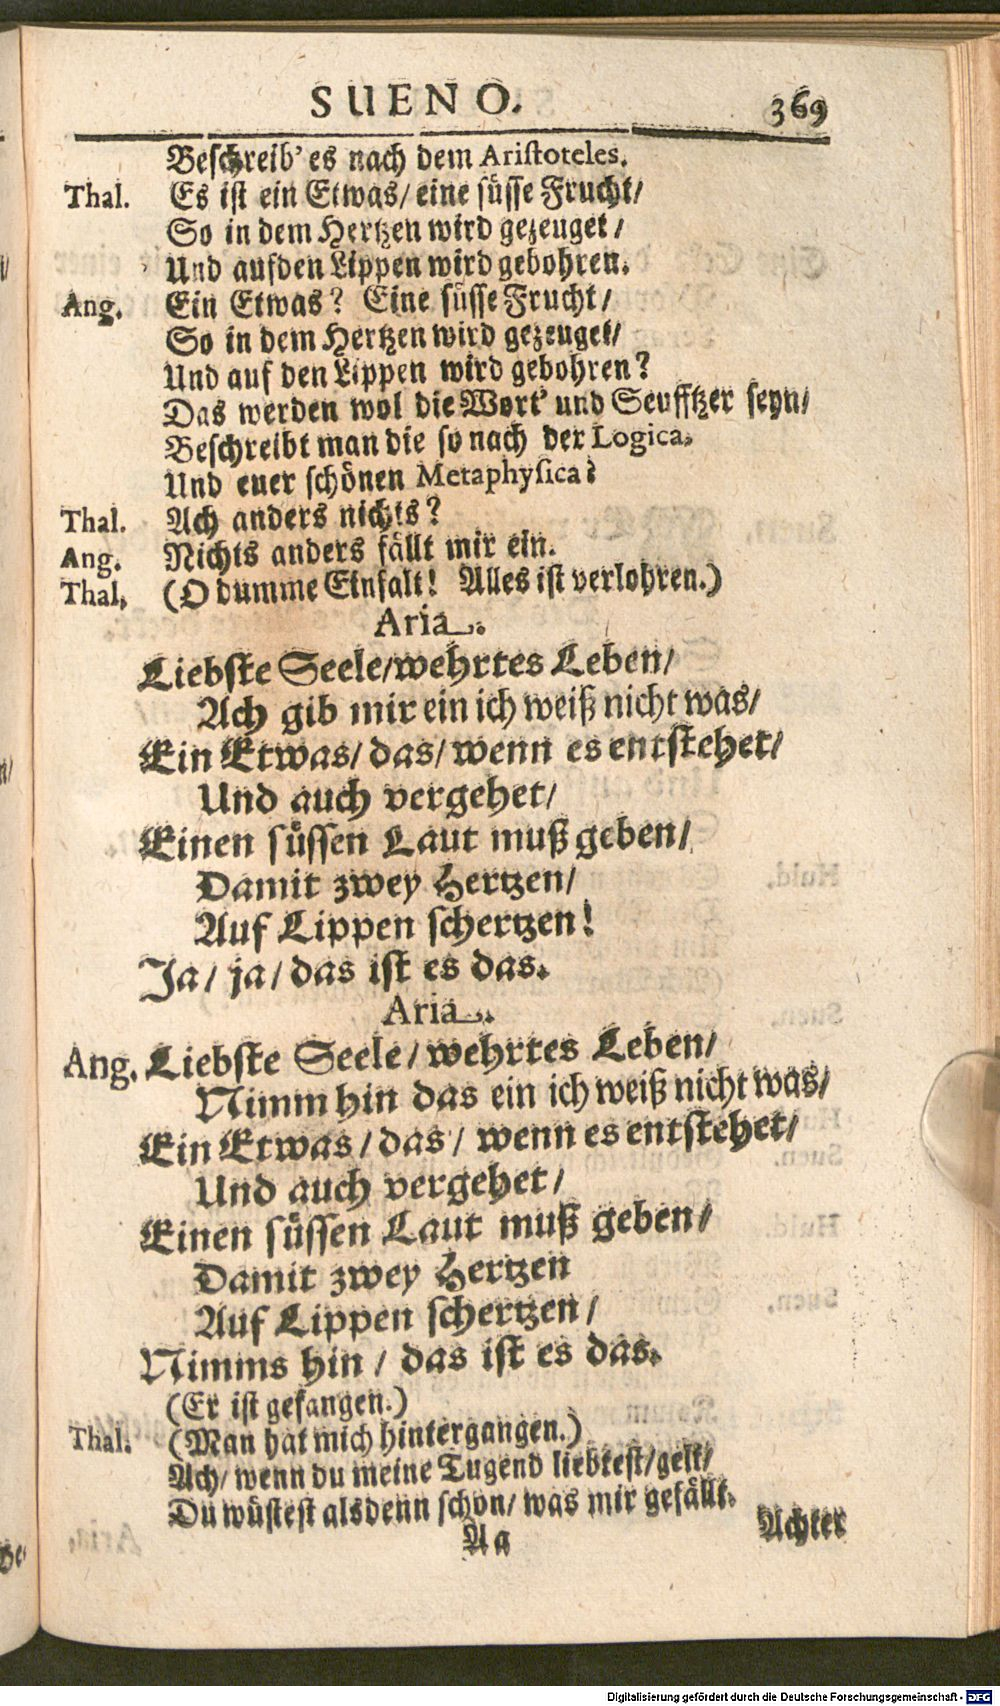 SUENO. 369
Beschreib' es nach dem Aristoteles.
Thal. Es ist ein Etwas/ eine süsse Frucht/
So in dem Hertzen wird gezeuget/
Und auf den Lippen wird gebohren.
Ang. Ein Etwas? Eine süsse Frucht/
So in dem Hertzen wird gezeuget/
Und auf den Lippen wird gebohren?
Das werden wol die Wort' und Seufftzer seyn/
Beschreibt man die so nach der Logica,
Und euer schönen Metaphysica?
Thal. Ach anders nichts?
Ang. Nichts anders fällt mir ein.
Thal. (O dumme Einfalt! Alles ist verlohren.)
Aria.
Liebste Seele/ wehrtes Leben/
Ach gib mir ein ich weiß nicht was/
Ein Etwas/ das/ wenn es entstehet/
Und auch vergehet/
Einen süssen Laut muß geben/
Damit zwey Hertzen/
Auf Lippen schertzen!
Ja/ ja/ das ist es das.
Aria.
Ang. Liebste Seele/ wehrtes Leben/
Nimm hin das ein ich weiß nicht was/
Ein Etwas/ das/ wenn es entstehet/
Und auch vergehet/
Einen süssen Laut muß geben/
Damit zwey Hertzen
Auf Lippen schertzen/
Nimms hin/ das ist es das.
(Er ist gefangen.)
Thal. (Man hat mich hintergangen.)
Ach/ wenn du meine Tugend liebtest/ gelt/
Du wüstest alsdenn schon/ was mir gefällt.
Aa Achter
Digitalisierung gefördert durch die Deutsche Forschungsgemeinschaft - DFG